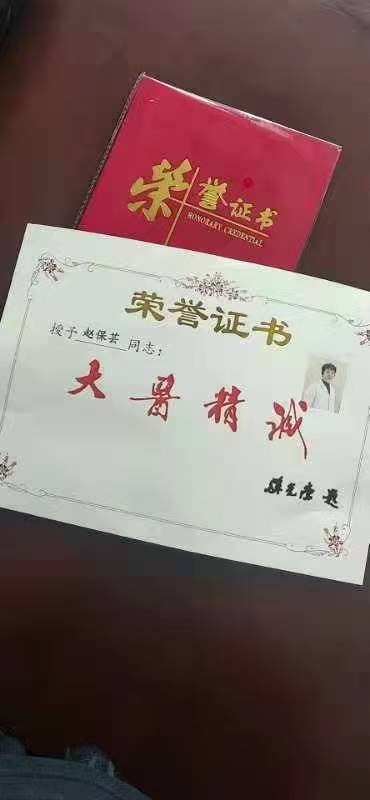 荣誉证书
HONORARY CREDENTIAL
荣誉证书
授予 赵保芸 同志：
大医精诚
孙光荣 题